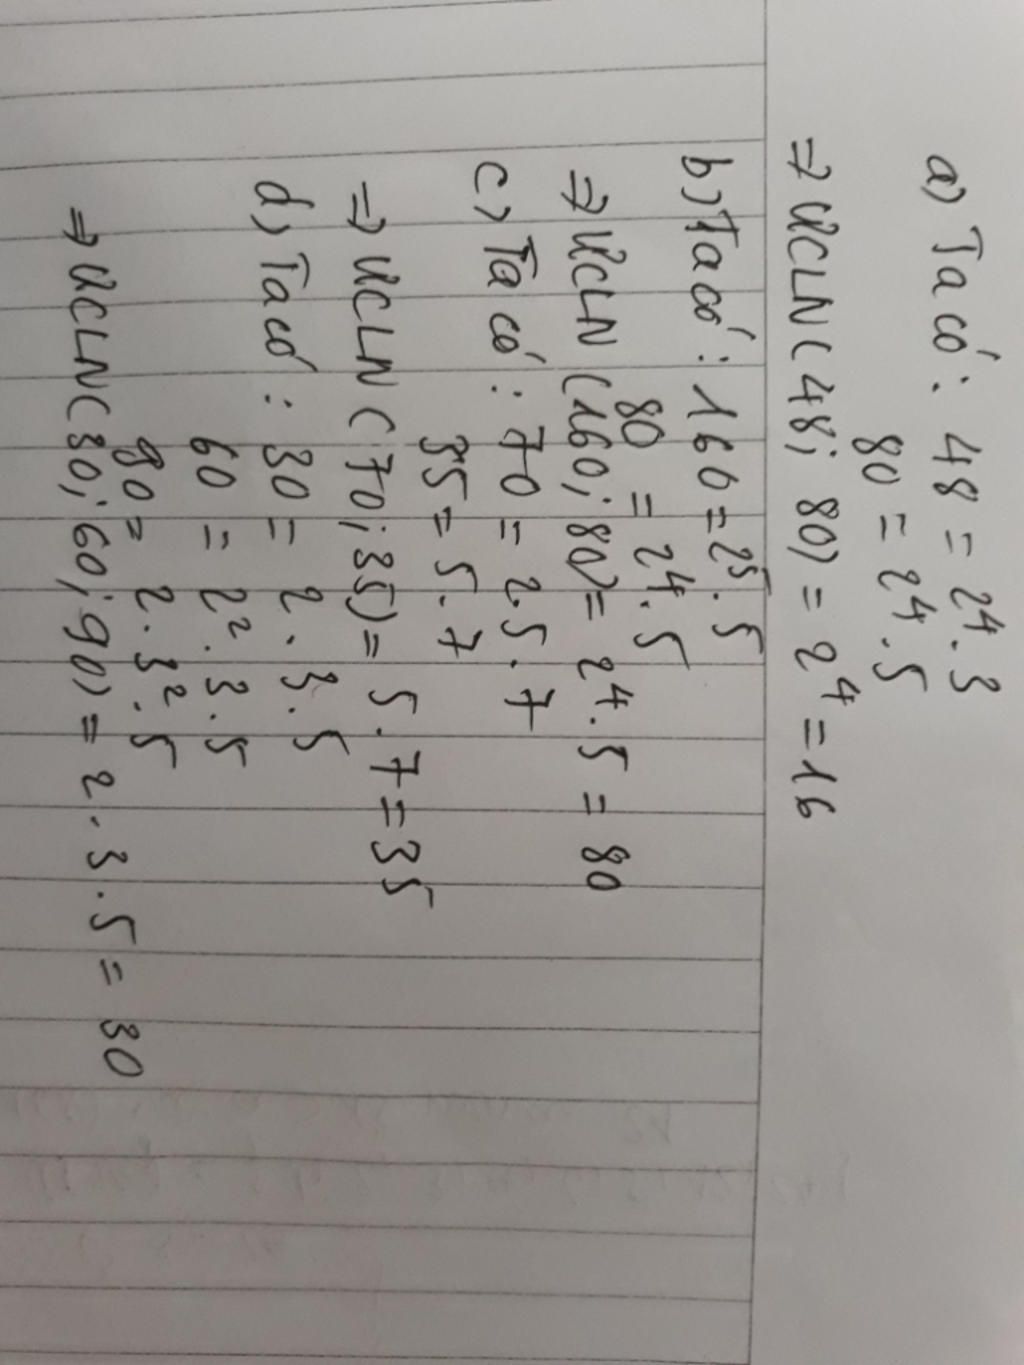 a) Ta có: 48 = 2⁴.3
80 = 2⁴.5
⇒ ƯCLN(48; 80) = 2⁴ = 16
b) Ta có: 160 = 2⁵.5
80 = 2⁴.5
⇒ ƯCLN (160; 80) = 2⁴.5 = 80
c) Ta có: 70 = 2.5.7
35 = 5.7
⇒ ƯCLN (70; 35) = 5.7 = 35
d) Ta có: 30 = 2.3.5
60 = 2².3.5
90 = 2.3².5
⇒ ƯCLN(30; 60; 90) = 2.3.5 = 30